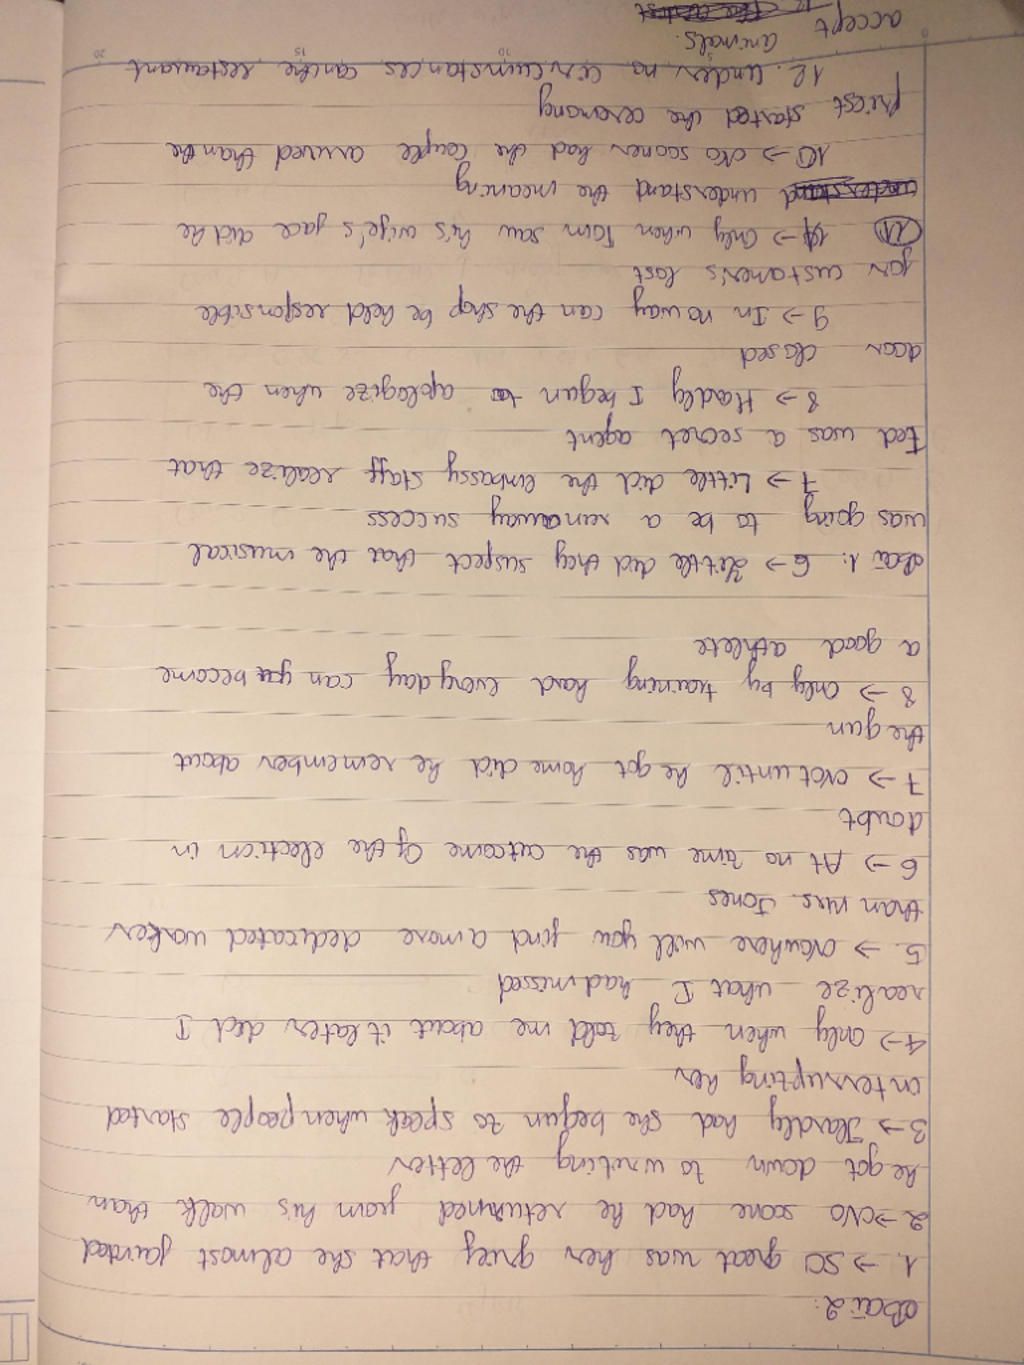 Bài 2:
1. → SO great was her grief that she almost fainted
2 → NO soone had he returned from his walk than
he got down to writing the letter
3 → Hardly had she begun to speak when people started
interrupting her
4 → Only when they told me about it later did I
realize what I had missed
5. → Nowhere will you find a more dedicated worker
than Mrs. Jones
6 → At no time was the outcome of the election in
doubt
7 → Not until he got home did he remember about
the gun
8 → Only by training hard everyday can you become
a good athlete
Bài 1: 6 → Little did they suspect that the musical
was going to be a runaway success
7 → Little did the embassy staff realize that
Ted was a secret agent
8 → Hardly I began to apologize when the
door closed
9 → In no way can the shop be held responsible
for customer's lost
11 → Only when Tom saw his wife's face did he
understand the meaning
10 → No sooner had the couple arrived than the
priest started the ceremony
12. Under no circumstances can the restaurant
accept animals.